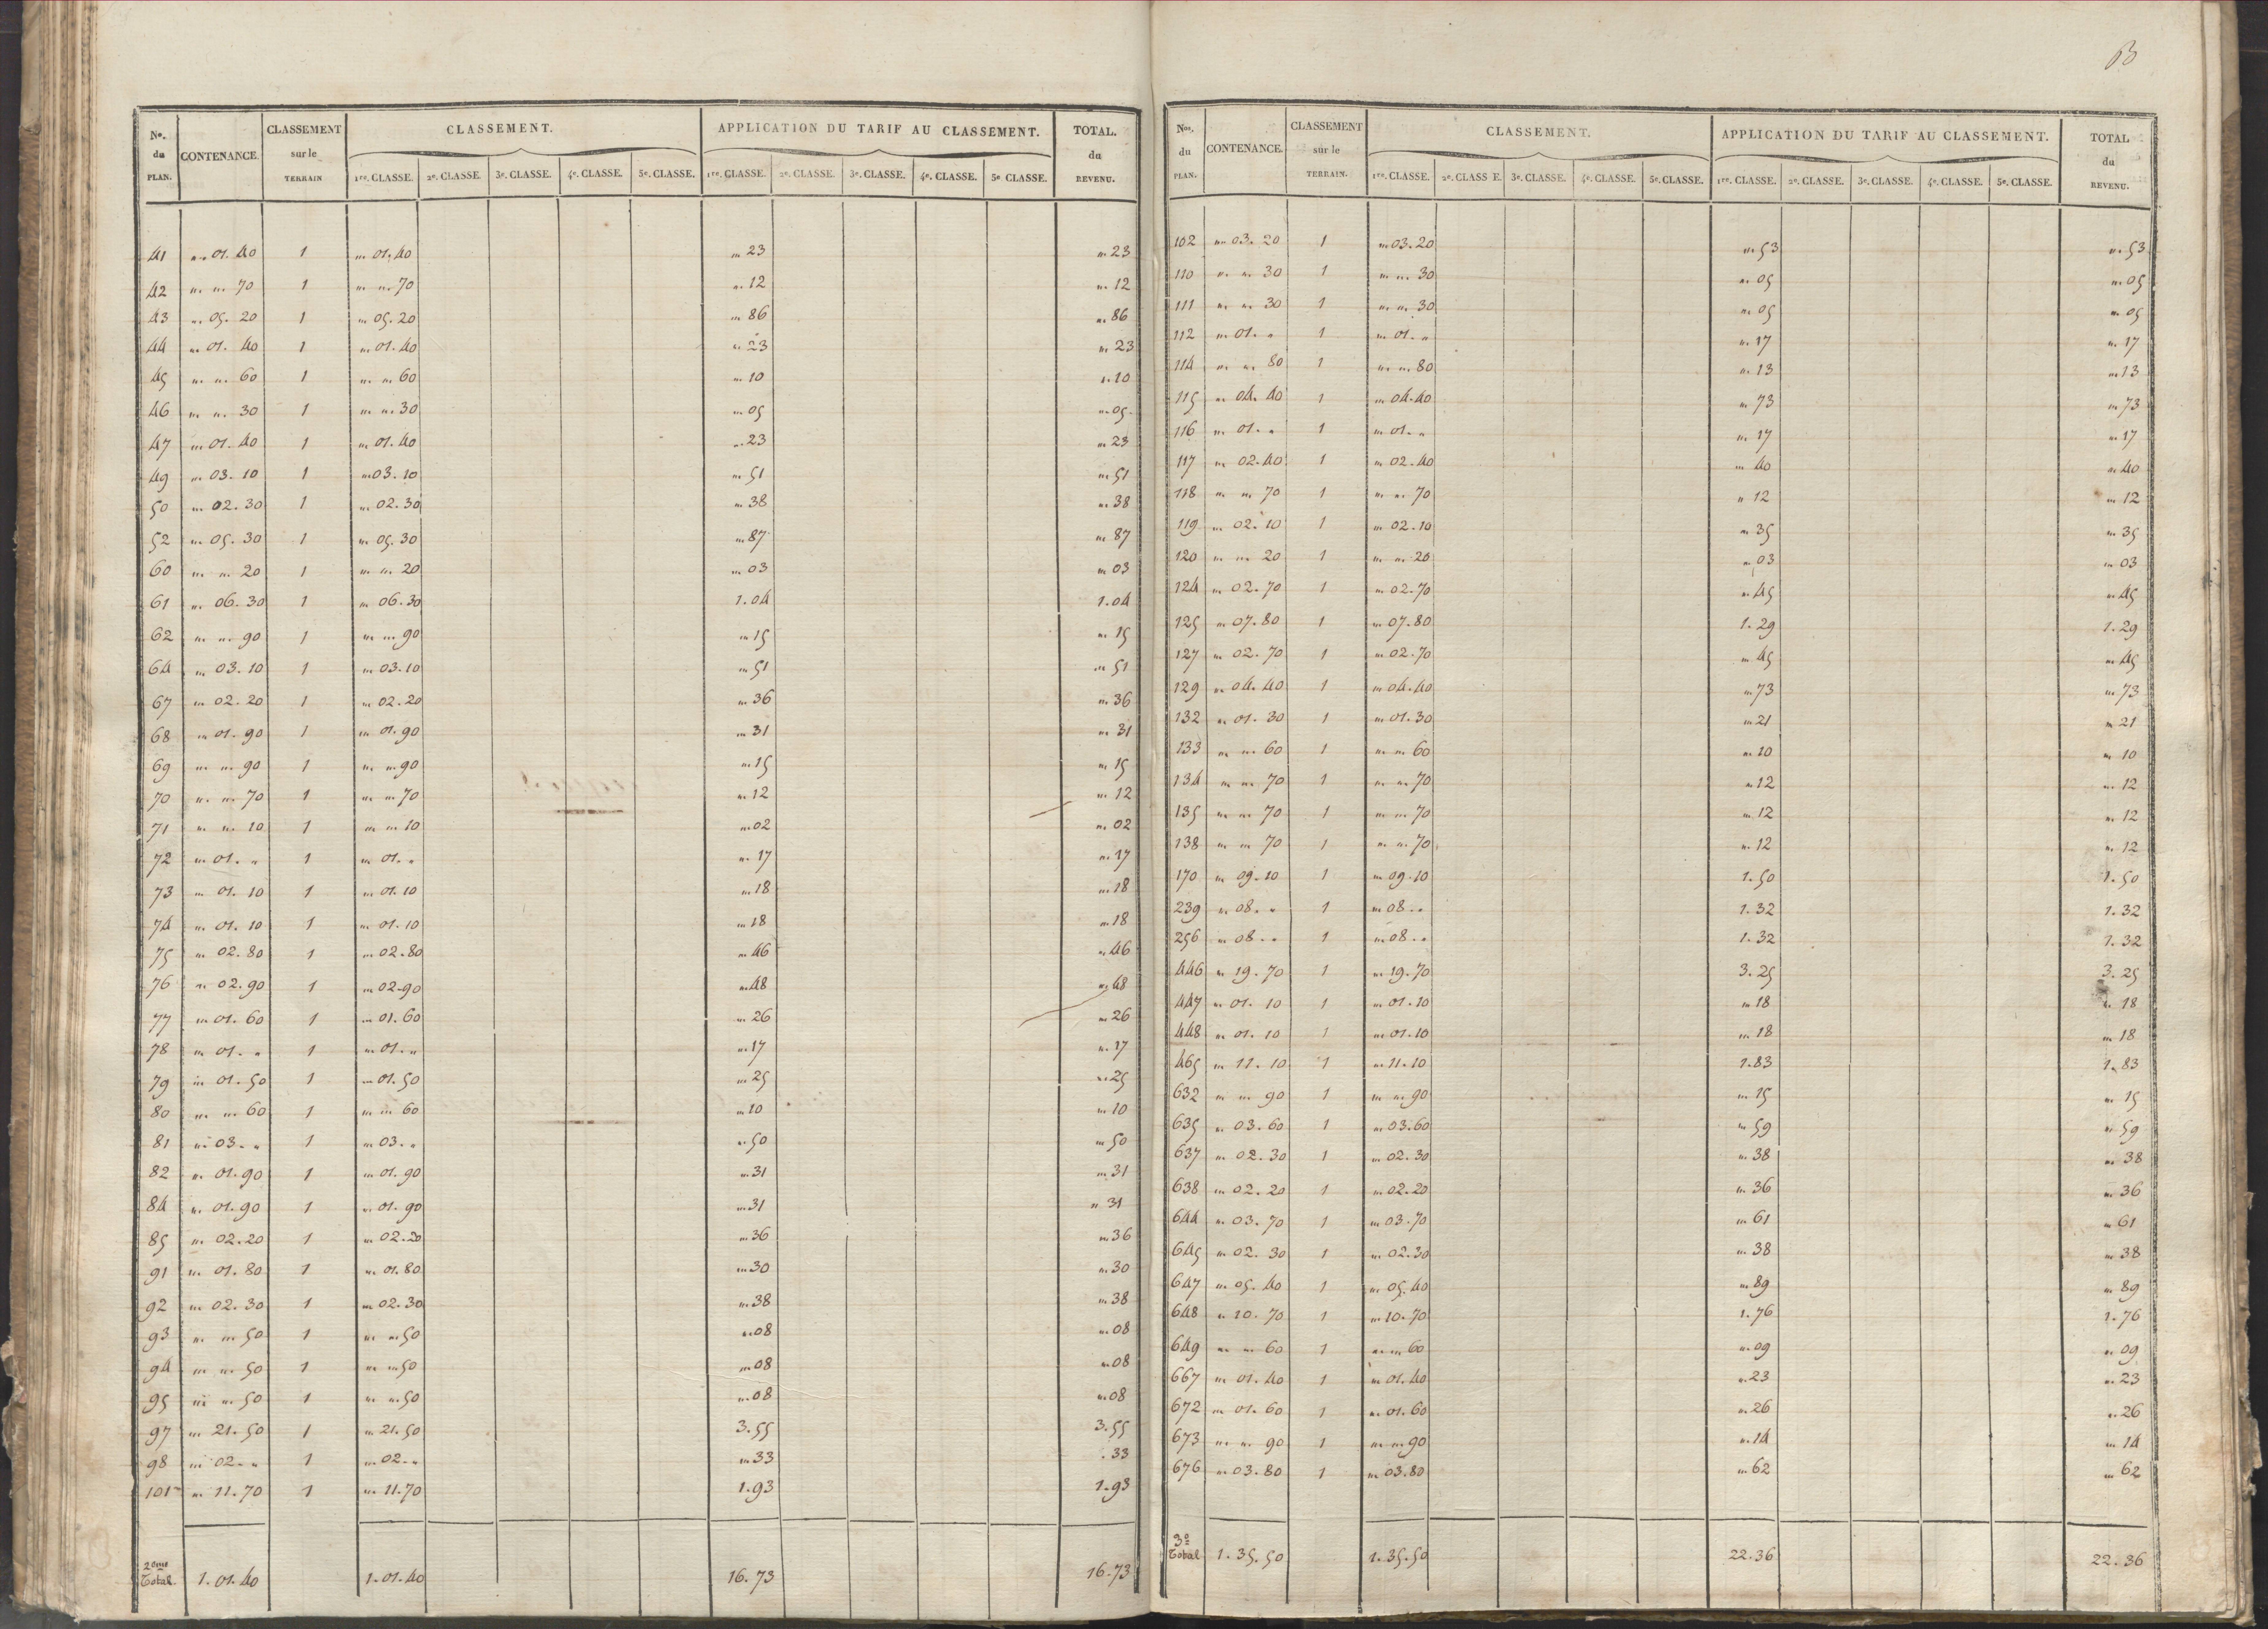 B
No. du PLAN. CONTENANCE. CLASSEMENT sur le TERRAIN CLASSEMENT. APPLICATION DU TARIF AU CLASSEMENT. TOTAL. du REVENU.
1re. CLASSE. 2e. CLASSE. 3e. CLASSE. 4e. CLASSE. 5e. CLASSE. 1re. CLASSE. 2e. CLASSE. 3e. CLASSE. 4e. CLASSE. 5e. CLASSE.
41 „ 01. 40 1 „ 01. 40 „ 23 „ 23
42 „ „ 70 1 „ „ 70 „ 12 „ 12
43 „ 05. 20 1 „ 05. 20 „ 86 „ 86
44 „ 01. 40 1 „ 01. 40 „ 23 „ 23
45 „ „ 60 1 „ „ 60 „ 10 „ 10
46 „ „ 30 1 „ „ 30 „ 05 „ 05
47 „ 01. 40 1 „ 01. 40 „ 23 „ 23
49 „ 03. 10 1 „ 03. 10 „ 51 „ 51
50 „ 02. 30 1 „ 02. 30 „ 38 „ 38
52 „ 05. 30 1 „ 05. 30 „ 87 „ 87
60 „ „ 20 1 „ „ 20 „ 03 „ 03
61 „ 06. 30 1 „ 06. 30 1. 04 1. 04
62 „ „ 90 1 „ „ 90 „ 15 „ 15
64 „ 03. 10 1 „ 03. 10 „ 51 „ 51
67 „ 02. 20 1 „ 02. 20 „ 36 „ 36
68 „ 01. 90 1 „ 01. 90 „ 31 „ 31
69 „ „ 90 1 „ „ 90 „ 15 „ 15
70 „ „ 70 1 „ „ 70 „ 12 „ 12
71 „ „ 10 1 „ „ 10 „ 02 „ 02
72 „ 01. „ 1 „ 01. „ „ 17 „ 17
73 „ 01. 10 1 „ 01. 10 „ 18 „ 18
74 „ 01. 10 1 „ 01. 10 „ 18 „ 18
75 „ 02. 80 1 „ 02. 80 „ 46 „ 46
76 „ 02. 90 1 „ 02. 90 „ 48 „ 48
77 „ 01. 60 1 „ 01. 60 „ 26 „ 26
78 „ 01. „ 1 „ 01. „ „ 17 „ 17
79 „ 01. 50 1 „ 01. 50 „ 25 „ 25
80 „ „ 60 1 „ „ 60 „ 10 „ 10
81 „ 03. „ 1 „ 03. „ „ 50 „ 50
82 „ 01. 90 1 „ 01. 90 „ 31 „ 31
84 „ 01. 90 1 „ 01. 90 „ 31 „ 31
85 „ 02. 20 1 „ 02. 20 „ 36 „ 36
91 „ 01. 80 1 „ 01. 80 „ 30 „ 30
92 „ 02. 30 1 „ 02. 30 „ 38 „ 38
93 „ „ 50 1 „ „ 50 „ 08 „ 08
94 „ „ 50 1 „ „ 50 „ 08 „ 08
95 „ „ 50 1 „ „ 50 „ 08 „ 08
97 „ 21. 50 1 „ 21. 50 3. 55 3. 55
98 „ 02. „ 1 „ 02. „ „ 33 . 33
101 „ 11. 70 1 „ 11. 70 1. 93 1. 93
2eme Total 1. 01. 40 1. 01. 40 16. 73 16. 73
Nos. du PLAN. CONTENANCE. CLASSEMENT sur le TERRAIN. CLASSEMENT. APPLICATION DU TARIF AU CLASSEMENT. TOTAL du REVENU.
1re. CLASSE. 2e. CLASS E. 3e. CLASSE. 4e. CLASSE. 5e. CLASSE. 1re. CLASSE. 2e. CLASSE. 3e. CLASSE. 4e. CLASSE. 5e. CLASSE.
102 „ 03. 20 1 „ 03. 20 „ 53 „ 53
110 „ „ 30 1 „ „ 30 „ 05 „ 05
111 „ „ 30 1 „ „ 30 „ 05 „ 05
112 „ 01. „ 1 „ 01. „ „ 17 „ 17
114 „ „ 80 1 „ „ 80 „ 13 „ 13
115 „ 04. 40 1 „ 04. 40 „ 73 „ 73
116 „ 01. „ 1 „ 01. „ „ 17 „ 17
117 „ 02. 40 1 „ 02. 40 „ 40 „ 40
118 „ „ 70 1 „ „ 70 „ 12 „ 12
119 „ 02. 10 1 „ 02. 10 „ 35 „ 35
120 „ „ 20 1 „ „ 20 „ 03 „ 03
124 „ 02. 70 1 „ 02. 70 „ 45 „ 45
125 „ 07. 80 1 „ 07. 80 1. 29 1. 29
127 „ 02. 70 1 „ 02. 70 „ 45 „ 45
129 „ 04. 40 1 „ 04. 40 „ 73 „ 73
132 „ 01. 30 1 „ 01. 30 „ 21 „ 21
133 „ „ 60 1 „ „ 60 „ 10 „ 10
134 „ „ 70 1 „ „ 70 „ 12 „ 12
135 „ „ 70 1 „ „ 70 „ 12 „ 12
138 „ „ 70 1 „ „ 70 „ 12 „ 12
170 „ 09. 10 1 „ 09. 10 1. 50 1. 50
239 „ 08. „ 1 „ 08. „ 1. 32 1. 32
256 „ 08. „ 1 „ 08. „ 1. 32 1. 32
446 „ 19. 70 1 „ 19. 70 3. 25 3. 25
447 „ 01. 10 1 „ 01. 10 „ 18 „ 18
448 „ 01. 10 1 „ 01. 10 „ 18 „ 18
465 „ 11. 10 1 „ 11. 10 1. 83 1. 83
632 „ „ 90 1 „ „ 90 „ 15 „ 15
635 „ 03. 60 1 „ 03. 60 „ 59 „ 59
637 „ 02. 30 1 „ 02. 30 „ 38 „ 38
638 „ 02. 20 1 „ 02. 20 „ 36 „ 36
644 „ 03. 70 1 „ 03. 70 „ 61 „ 61
645 „ 02. 30 1 „ 02. 30 „ 38 „ 38
647 „ 05. 40 1 „ 05. 40 „ 89 „ 89
648 „ 10. 70 1 „ 10. 70 1. 76 1. 76
649 „ „ 60 1 „ „ 60 „ 09 „ 09
667 „ 01. 40 1 „ 01. 40 „ 23 „ 23
672 „ 01. 60 1 „ 01. 60 „ 26 „ 26
673 „ „ 90 1 „ „ 90 „ 14 „ 14
676 „ 03. 80 1 „ 03. 80 „ 62 „ 62
3e Total 1. 35. 50 1. 35. 50 22. 36 22. 36